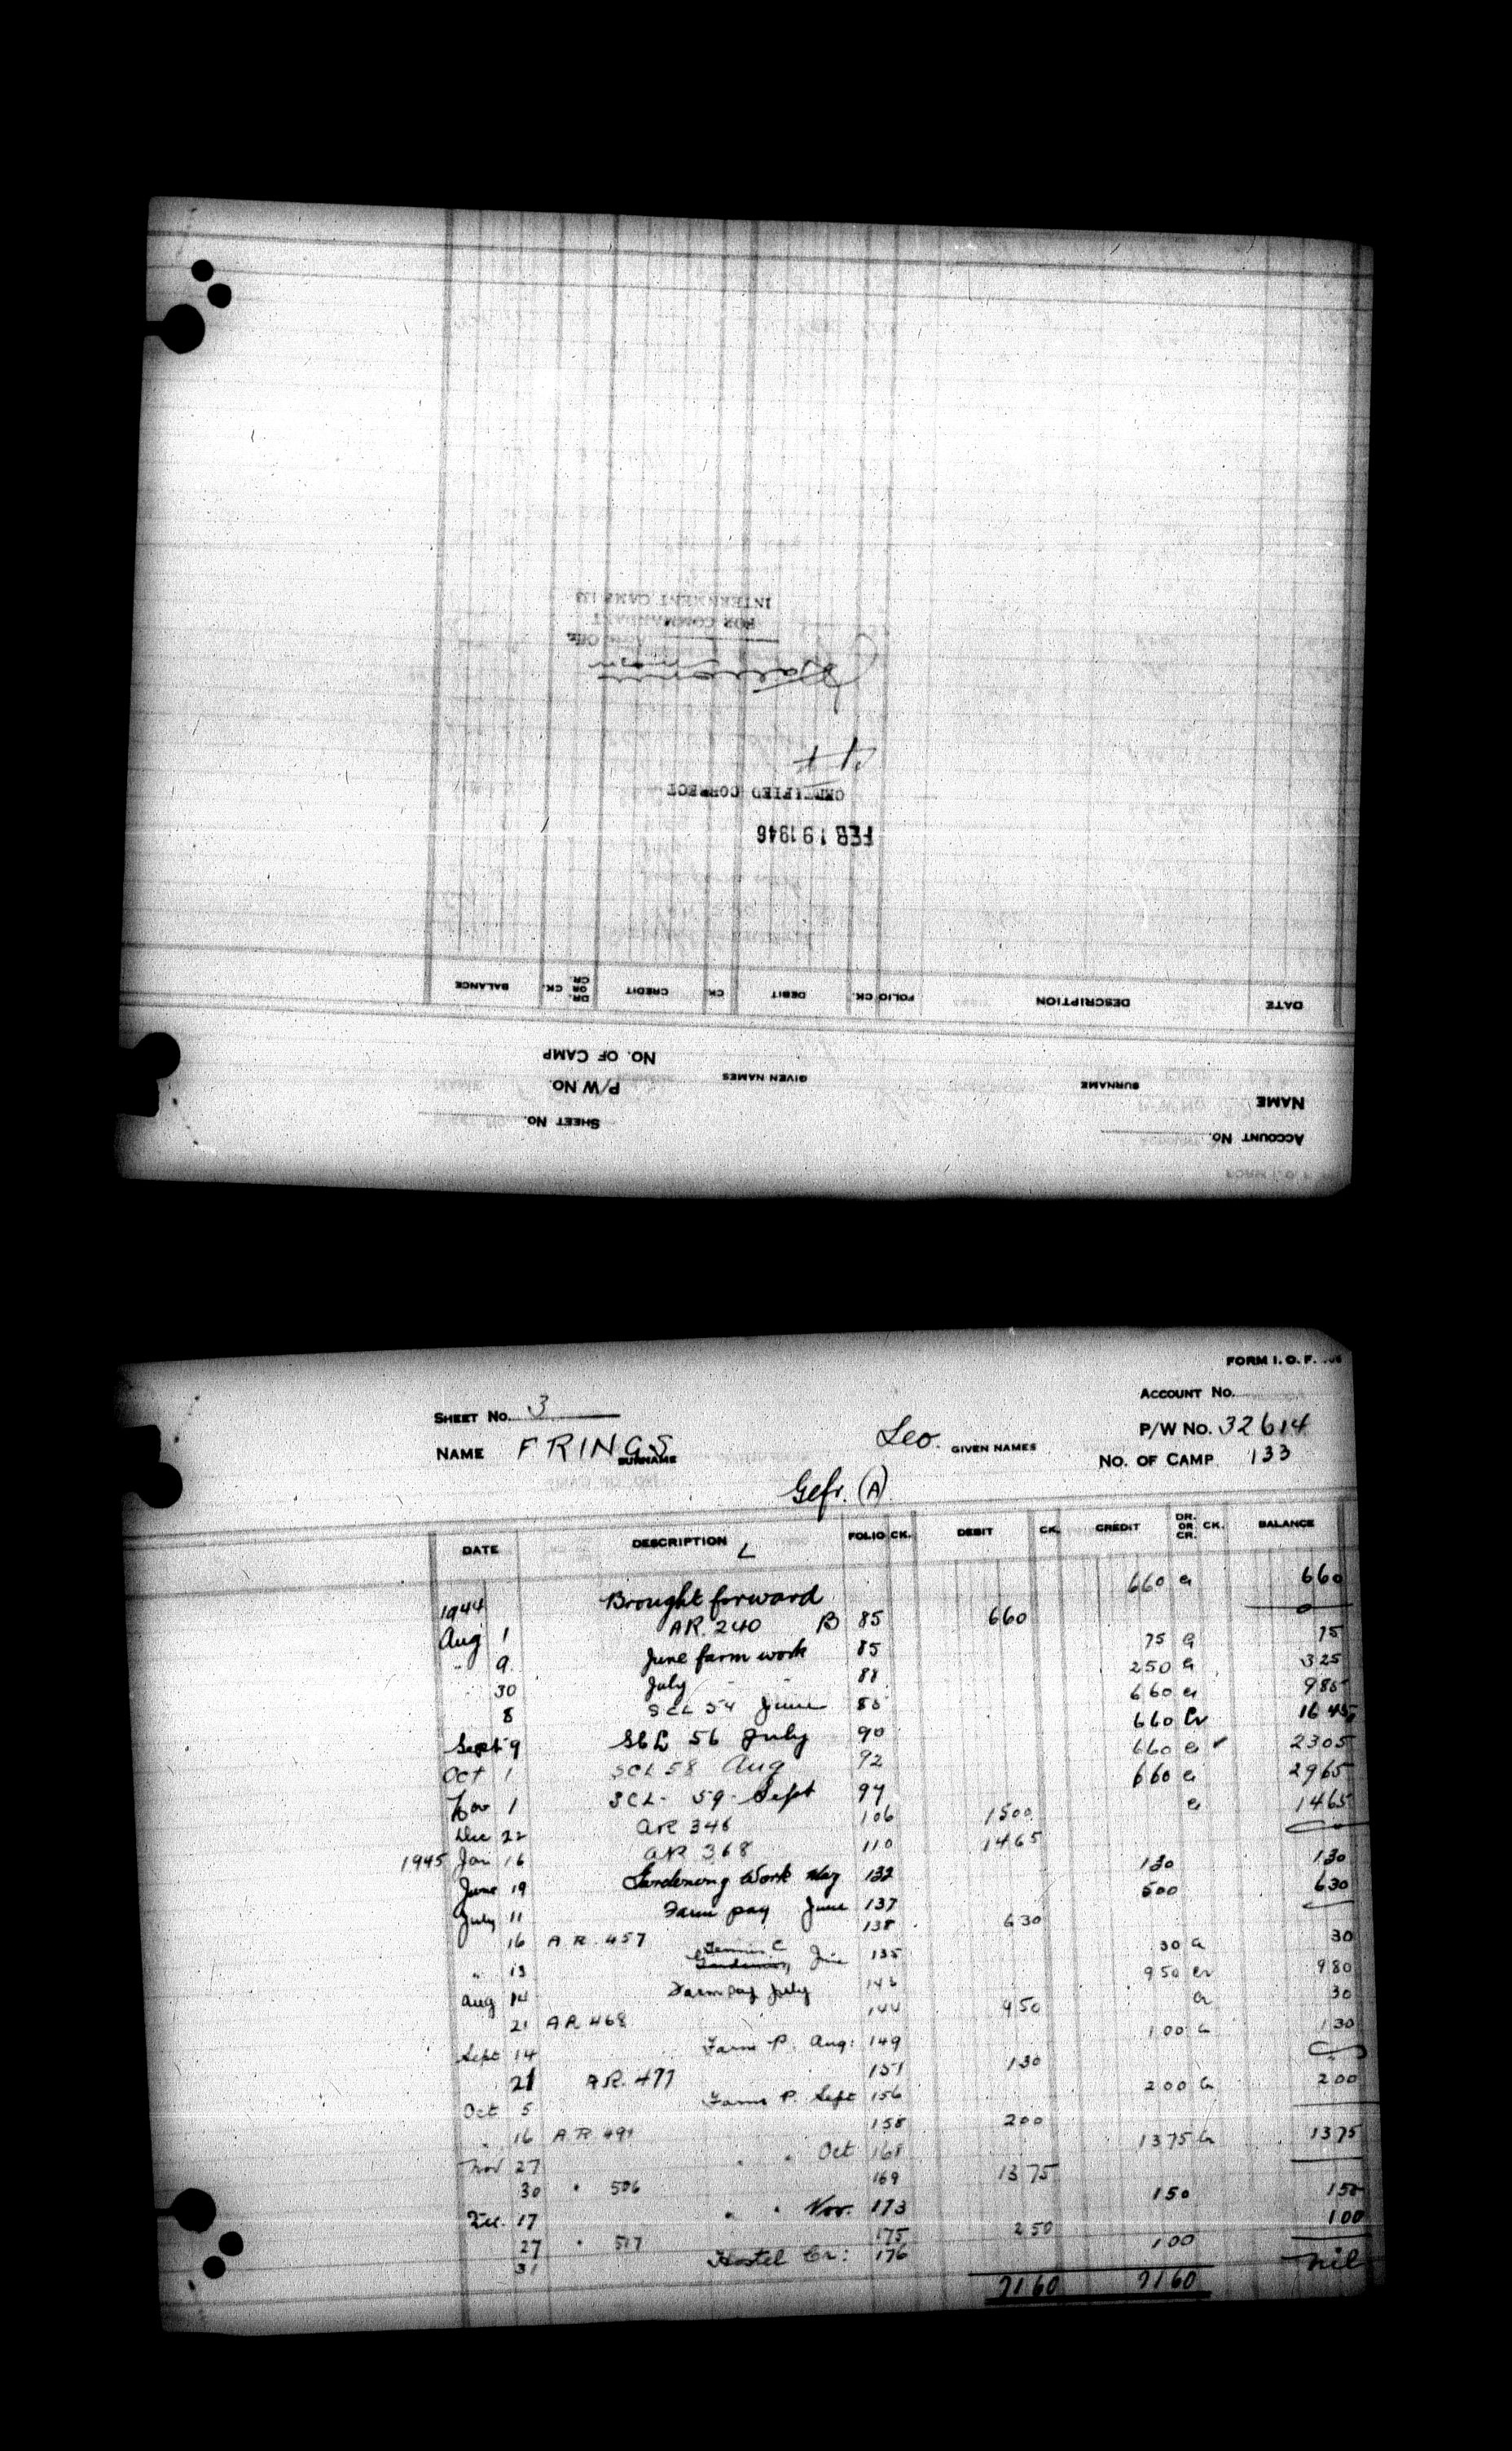 INTERNMENT CAMP 133
FOR COMMANDANT
CERTIFIED CORRECT
FEB 19 1946
BALANCE CK. DR. OR CR. CREDIT CK. DEBIT FOLIO CK. DESCRIPTION DATE
NO. OF CAMP
P/W NO. GIVEN NAMES SURNAME NAME
SHEET NO. ACCOUNT NO.
FORM I. O. F.
ACCOUNT NO.
SHEET NO. 3 P/W NO. 32614
NAME FRINGS SURNAME Leo. GIVEN NAMES NO. OF CAMP 133
Gefr. (A)
DATE DESCRIPTION FOLIO CK. DEBIT CK. CREDIT DR. OR CR. CK. BALANCE
1944 Brought forward 660 Cr 660
Aug 1 AR. 240 B 85 660 0
" 9 June farm work 85 75 Cr 75
30 July " 88 250 Cr 325
8 SCL 54 June 85 660 Cr 985
Sept 9 SCL 56 July 90 660 Cr 1645
Oct 1 SCL 58 Aug 92 660 Cr ✓ 2305
Nov 1 SCL- 59- Sept 97 660 Cr 2965
Dec 22 AR 346 106 1500 Cr 1465
1945 Jan 16 AR 368 110 1465
June 19 Gardening Work May 132 130 130
July 11 Farm pay June 137 500 630
16 A.R. 457 138 630
" 13 June 135 30 Cr 30
Aug 14 Farm pay July 143 950 Cr 980
21 A.R. 468 144 950 Cr 30
Sept 14 Farm P. Aug: 149 100 Cr 130
21 A.R. 477 151 130
Oct 5 Farm P. Sept 156 200 Cr 200
" 16 A.R. 491 158 200
Nov 27 " " Oct 168 1375 Cr 1375
30 " 506 169 1375
Dec. 17 " " Nov. 173 150 150
27 " 517 175 250 100
31 Hostel Cr: 176 100 nil
7160 7160